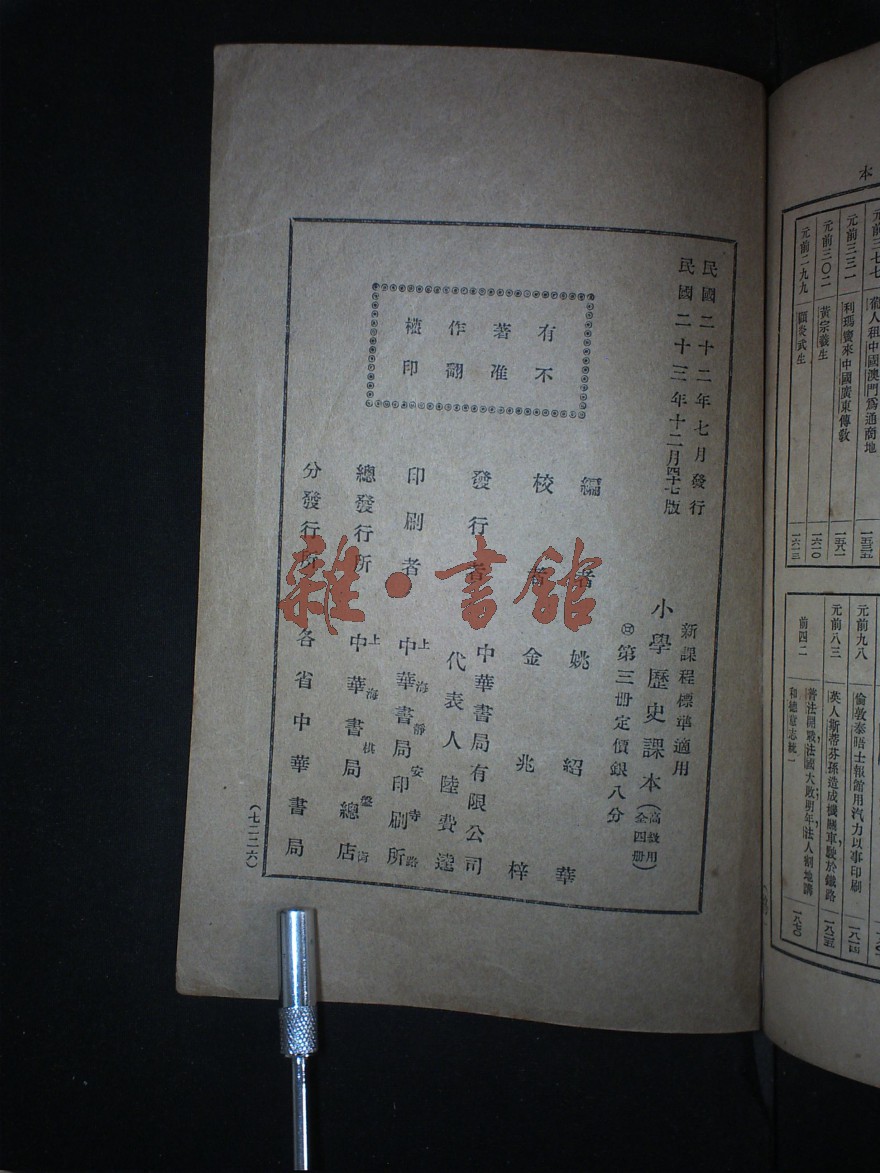 民國二十二年七月發行
民國二十三年十二月四十七版
有著作權
不准翻印
新課程標準適用
小學歷史課本(高級用 全四册)
第三册定價銀八分
編者 姚紹華
校者 金兆梓
發行者 中華書局有限公司
代表人陸費逵
印刷者 上海靜安寺路
中華書局印刷所
總發行所 上海棋盤街
中華書局總店
分發行所 各省中華書局
(七二二六)
雜·書館
本
元前三七七 葡人租中國澳門爲通商地 一五三五
元前三三一 利瑪竇來中國廣東傳敎 一五八一
元前三〇二 黃宗羲生 一六一〇
元前二九九 顧炎武生 一六一三
元前九八 倫敦泰晤士報館用汽力以事印刷 一八一四
元前八三 英人斯蒂芬孫造成機關車駛於鐵路
前四二 普法開戰,法國大敗;明年,法人割地講和,德意志統一 一八七〇